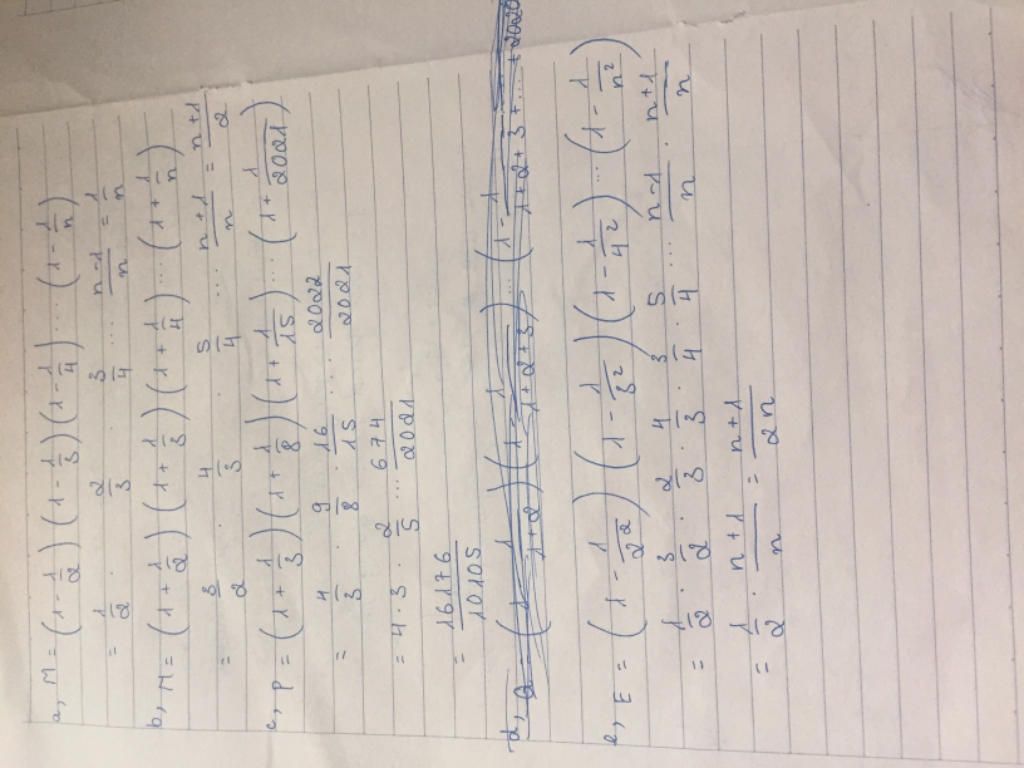 a, M = (1 - 1/2)(1 - 1/3)(1 - 1/4)....(1 - 1/n)
= 1/2 . 2/3 . 3/4 .... n-1/n = 1/n
b, M = (1 + 1/2)(1 + 1/3)(1 + 1/4)...(1 + 1/n)
= 3/2 . 4/3 . 5/4 ... n+1/n = n+1/2
c, P = (1 + 1/3)(1 + 1/8)(1 + 1/15)....(1 + 1/2021)
= 4/3 . 9/8 . 16/15 .... 2022/2021
= 4 . 3 . 2/5 ... 674/2021
= 16176/10105
d, Q = (1 - 1/1+2)(1 - 1/1+2+3)...(1 - 1/1+2+3+...+2020
e, E = (1 - 1/2²)(1 - 1/3²)(1 - 1/4²)...(1 - 1/n²)
= 1/2 . 3/2 . 2/3 . 4/3 . 3/4 . 5/4 .... n-1/n . n+1/n
= 1/2 . n+1/n = n+1/2n